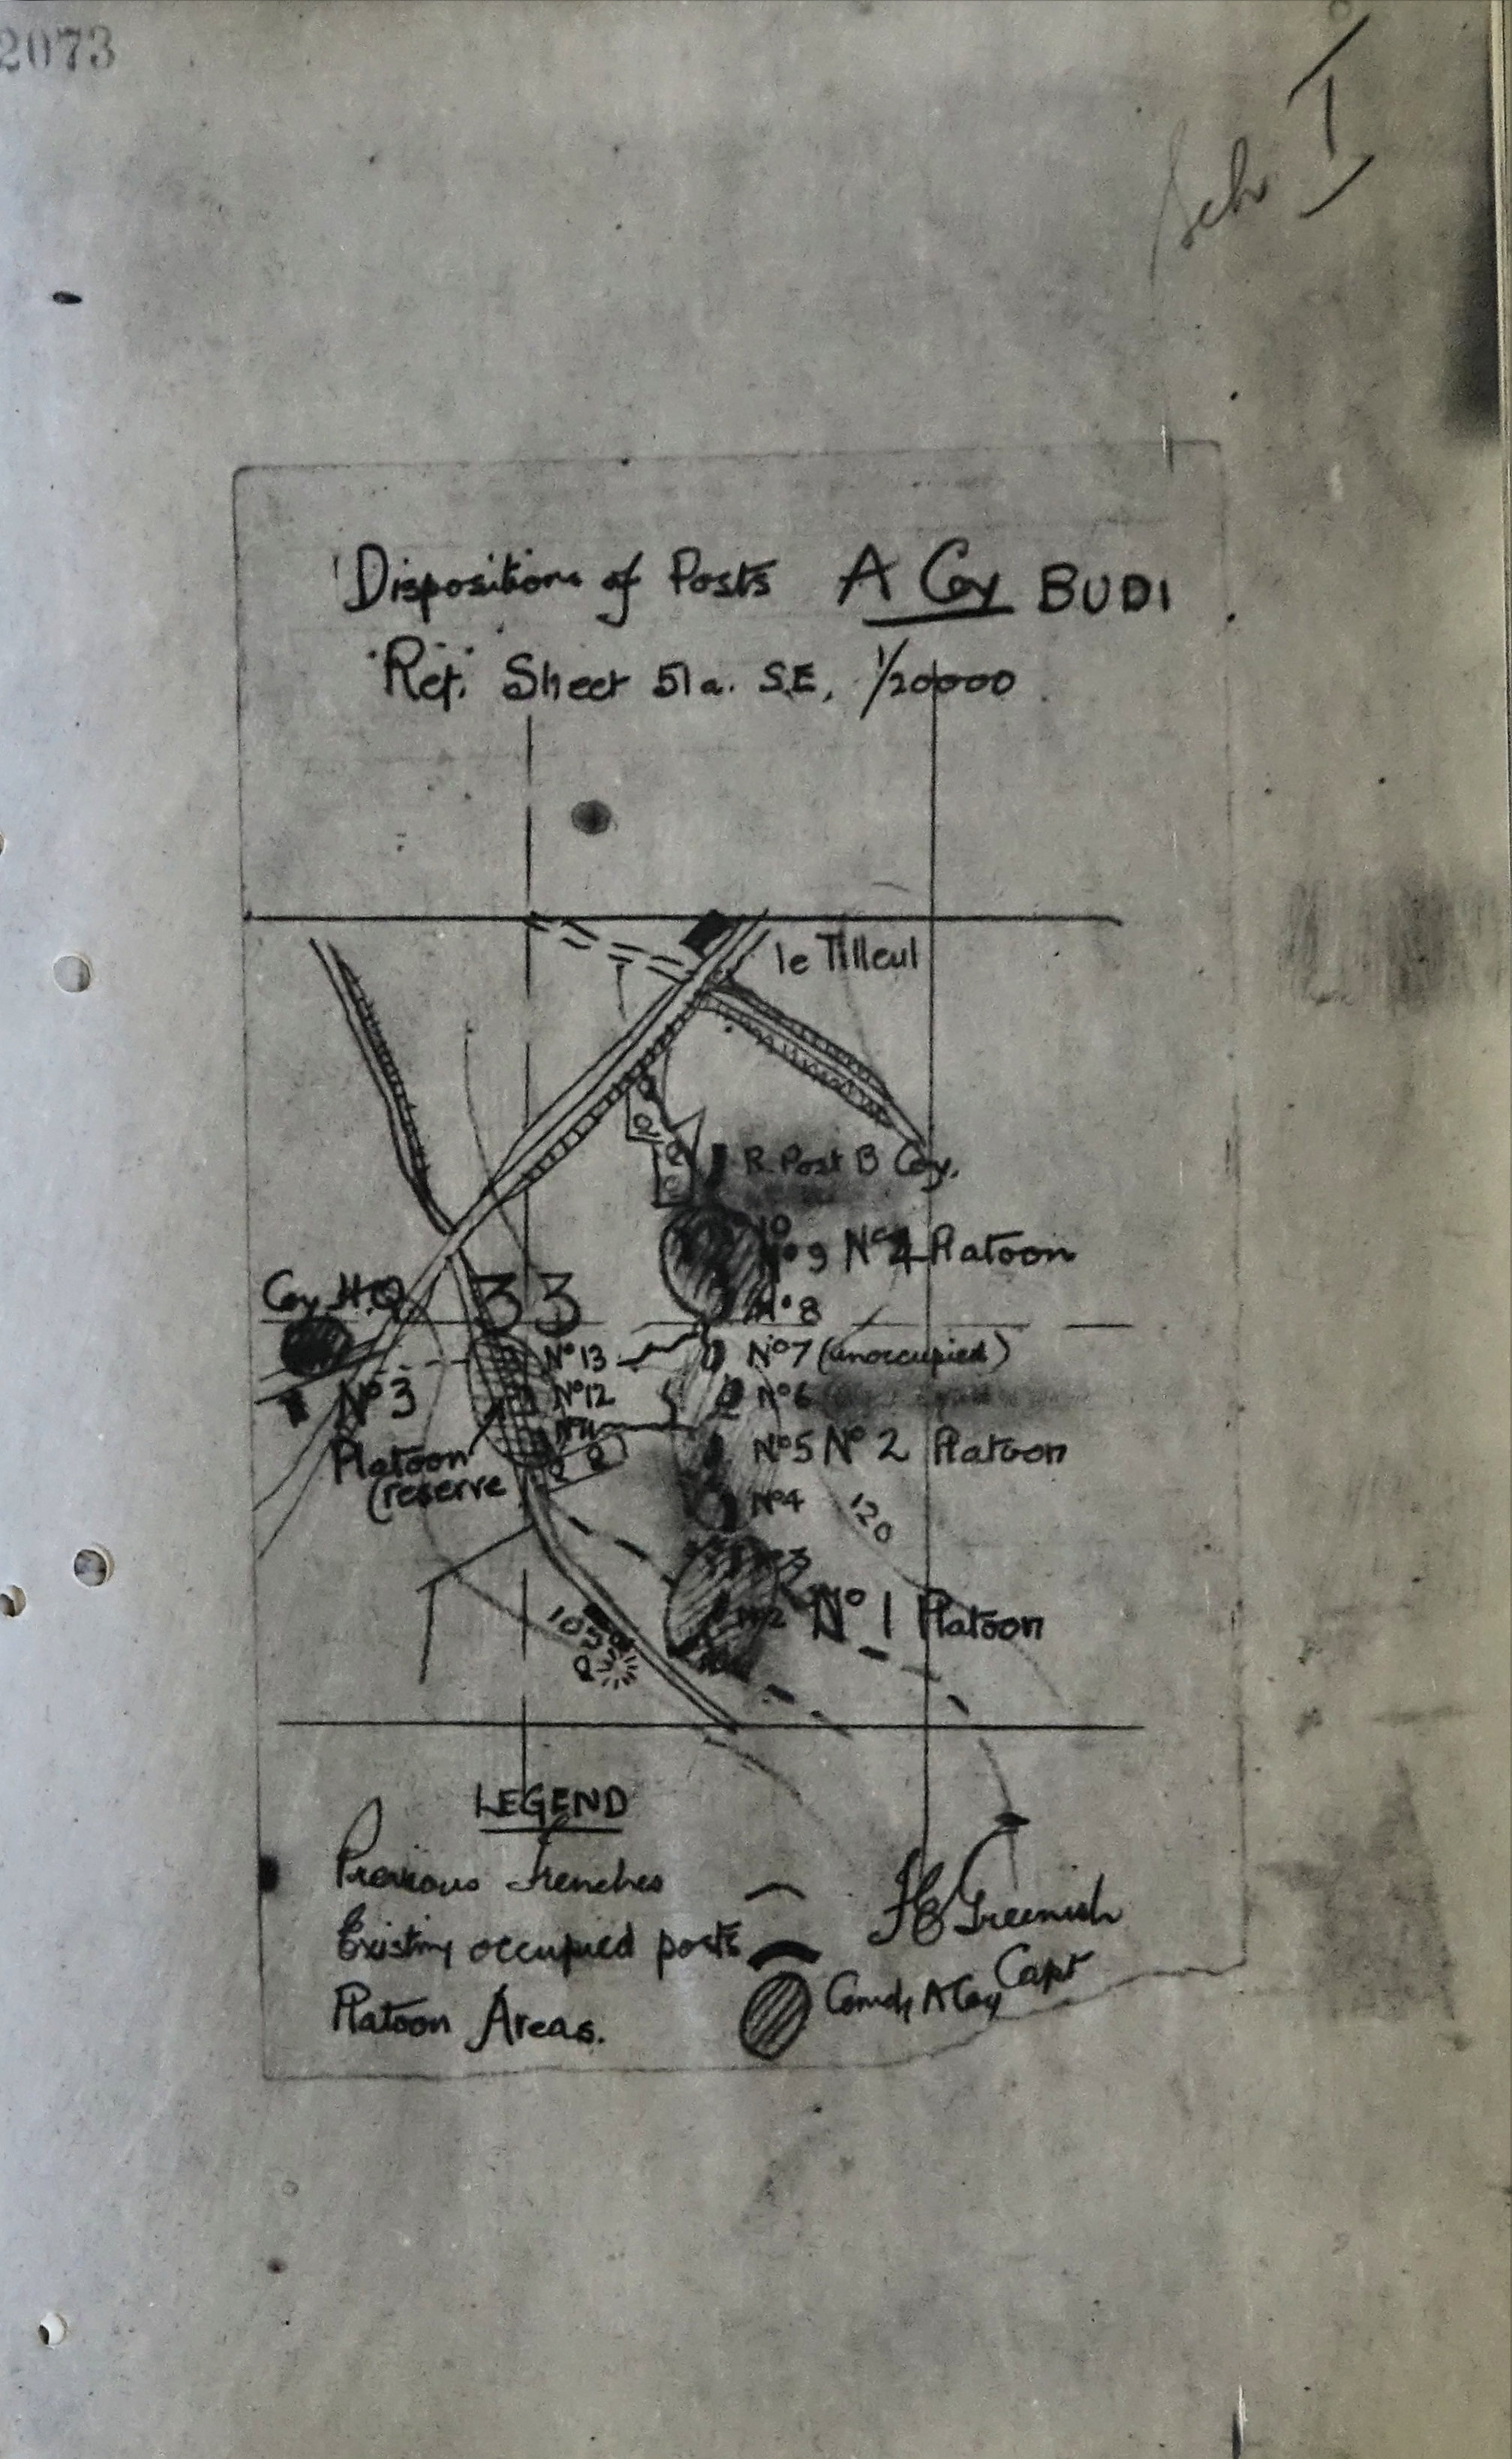 2073
Sch I
Dispositions of Posts A Coy BUDI
Ref. Sheet 51a. S.E, 1/20000
le Tilleul
R. Post B Coy.
10
No 9 No 4 Platoon
No 8
Coy H.Q
33
No 13
No 7 (unoccupied)
No 3
No 12
No 6
No 11
Platoon
No 5 No 2 Platoon
(reserve
No 4
120
3
No 2
No 1 Platoon
105
LEGEND
Previous trenches
Existing occupied posts
Platoon Areas.
Greenish
Capt
Comdg A Coy